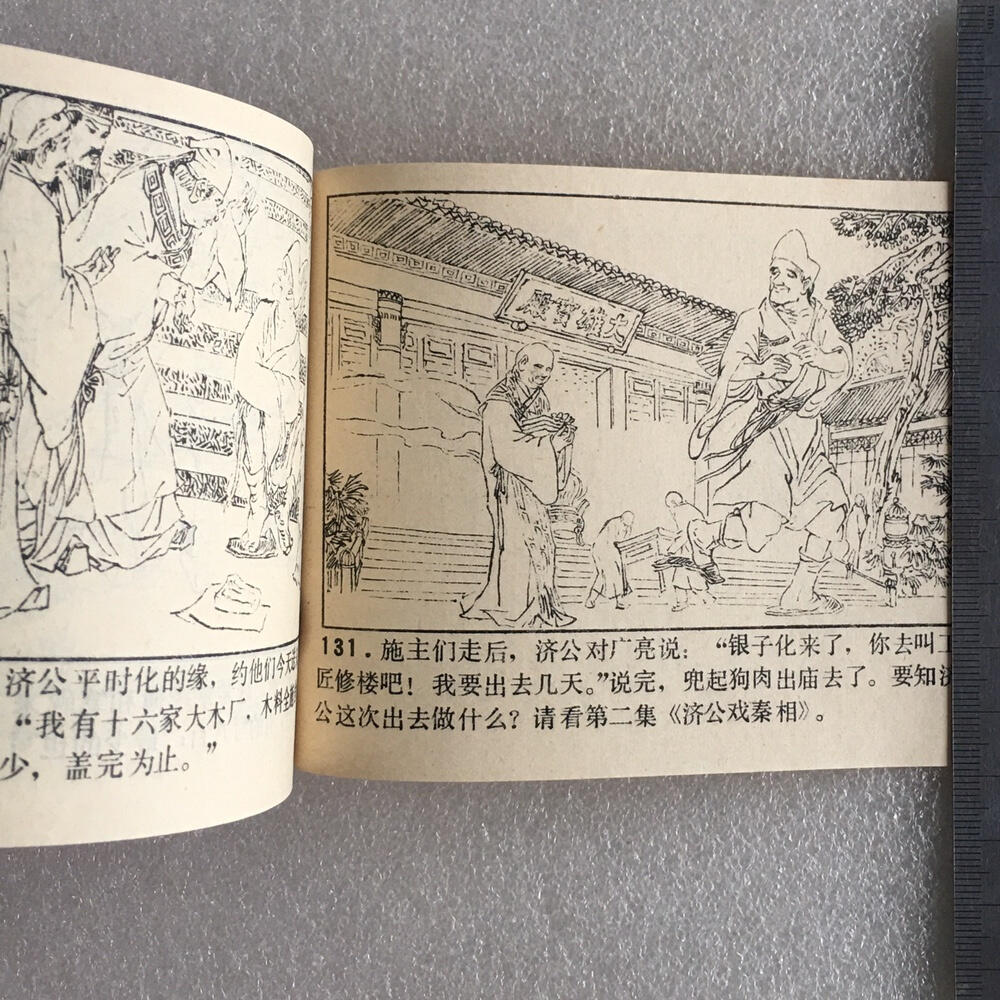 济公平时化的缘，约他们今天
“我有十六家大木厂，木料全
少，盖完为止。”
大雄宝殿
131．施主们走后，济公对广亮说：“银子化来了，你去叫工
匠修楼吧！我要出去几天。”说完，兜起狗肉出庙去了。要知济
公这次出去做什么？请看第二集《济公戏秦相》。